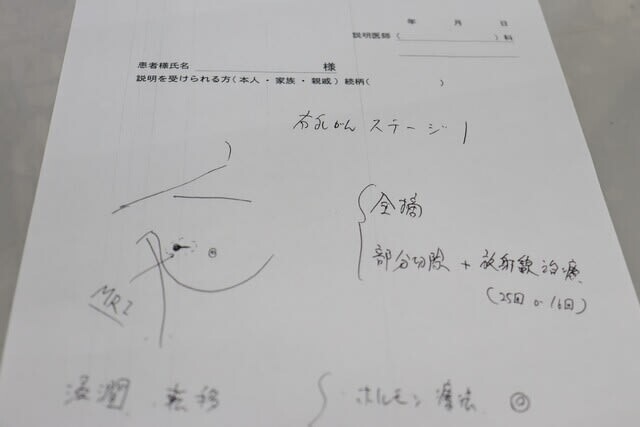 年 月 日
説明医師( )科
患者様氏名 様
説明を受けられる方(本人・家族・親戚)続柄( )
右乳がん ステージ1
全摘
部分切除 + 放射線治療
(25回 or 16回)
MRI
浸潤 転移 ホルモン療法 ◎